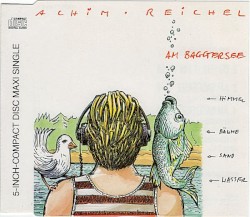 ACHIM · REICHEL
AM BAGGERSEE
HIMMEL
BÄUME
SAND
WASSER
5-INCH-COMPACT DISC MAXI SINGLE